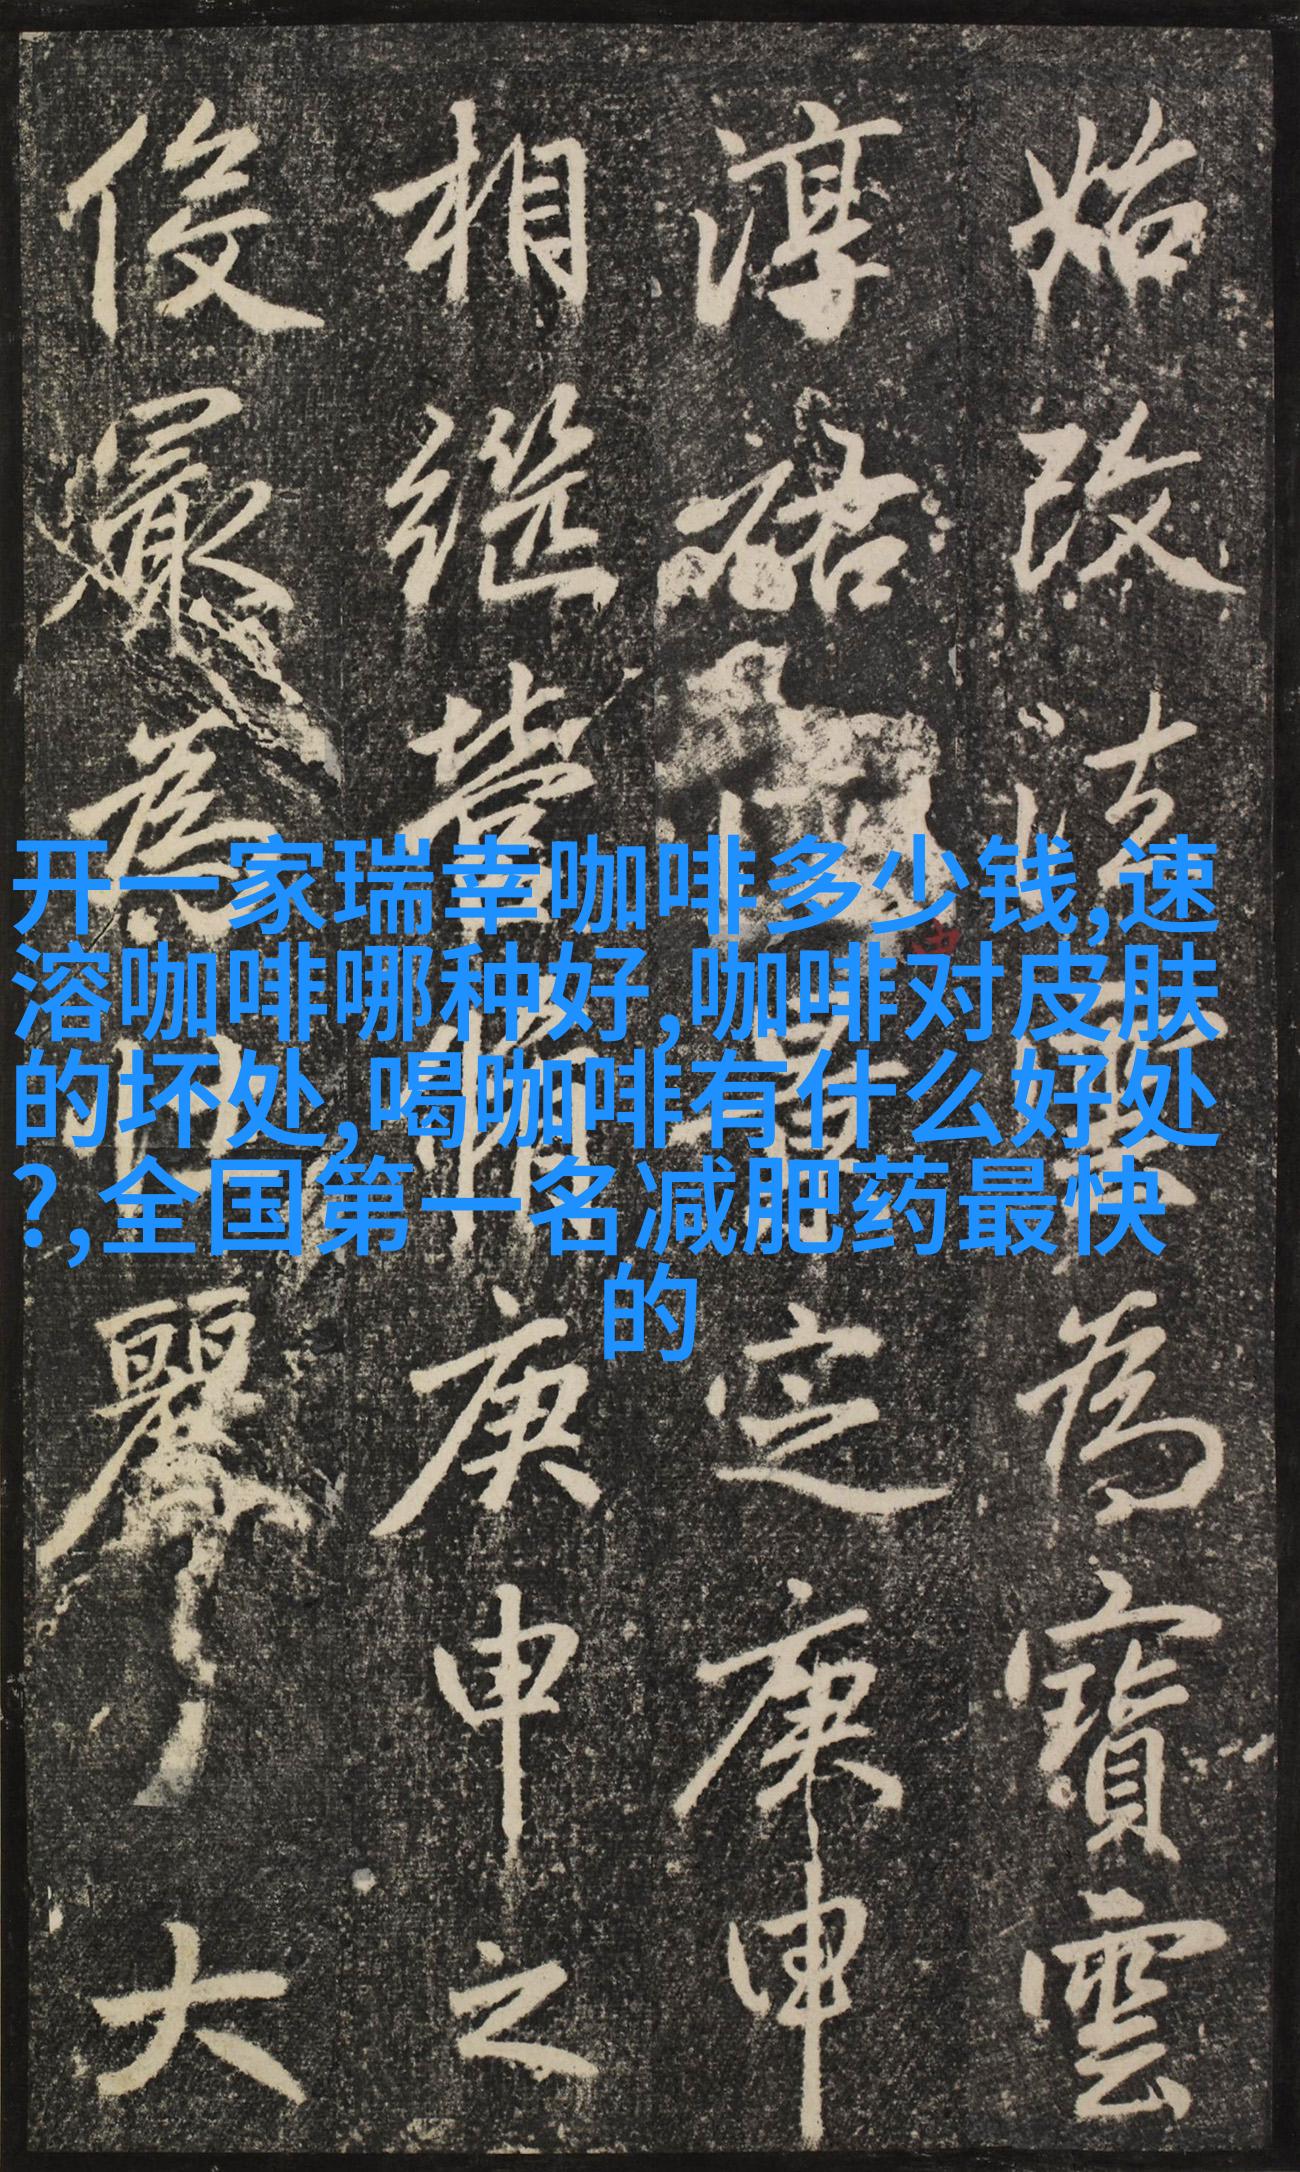 始改法雲為寶雲
淳祐定庚申
相繼營庚申之
俊最為壯麗大
开一家瑞幸咖啡多少钱,速
溶咖啡哪种好,咖啡对皮肤
的坏处,喝咖啡有什么好处
?,全国第一名减肥药最快
的